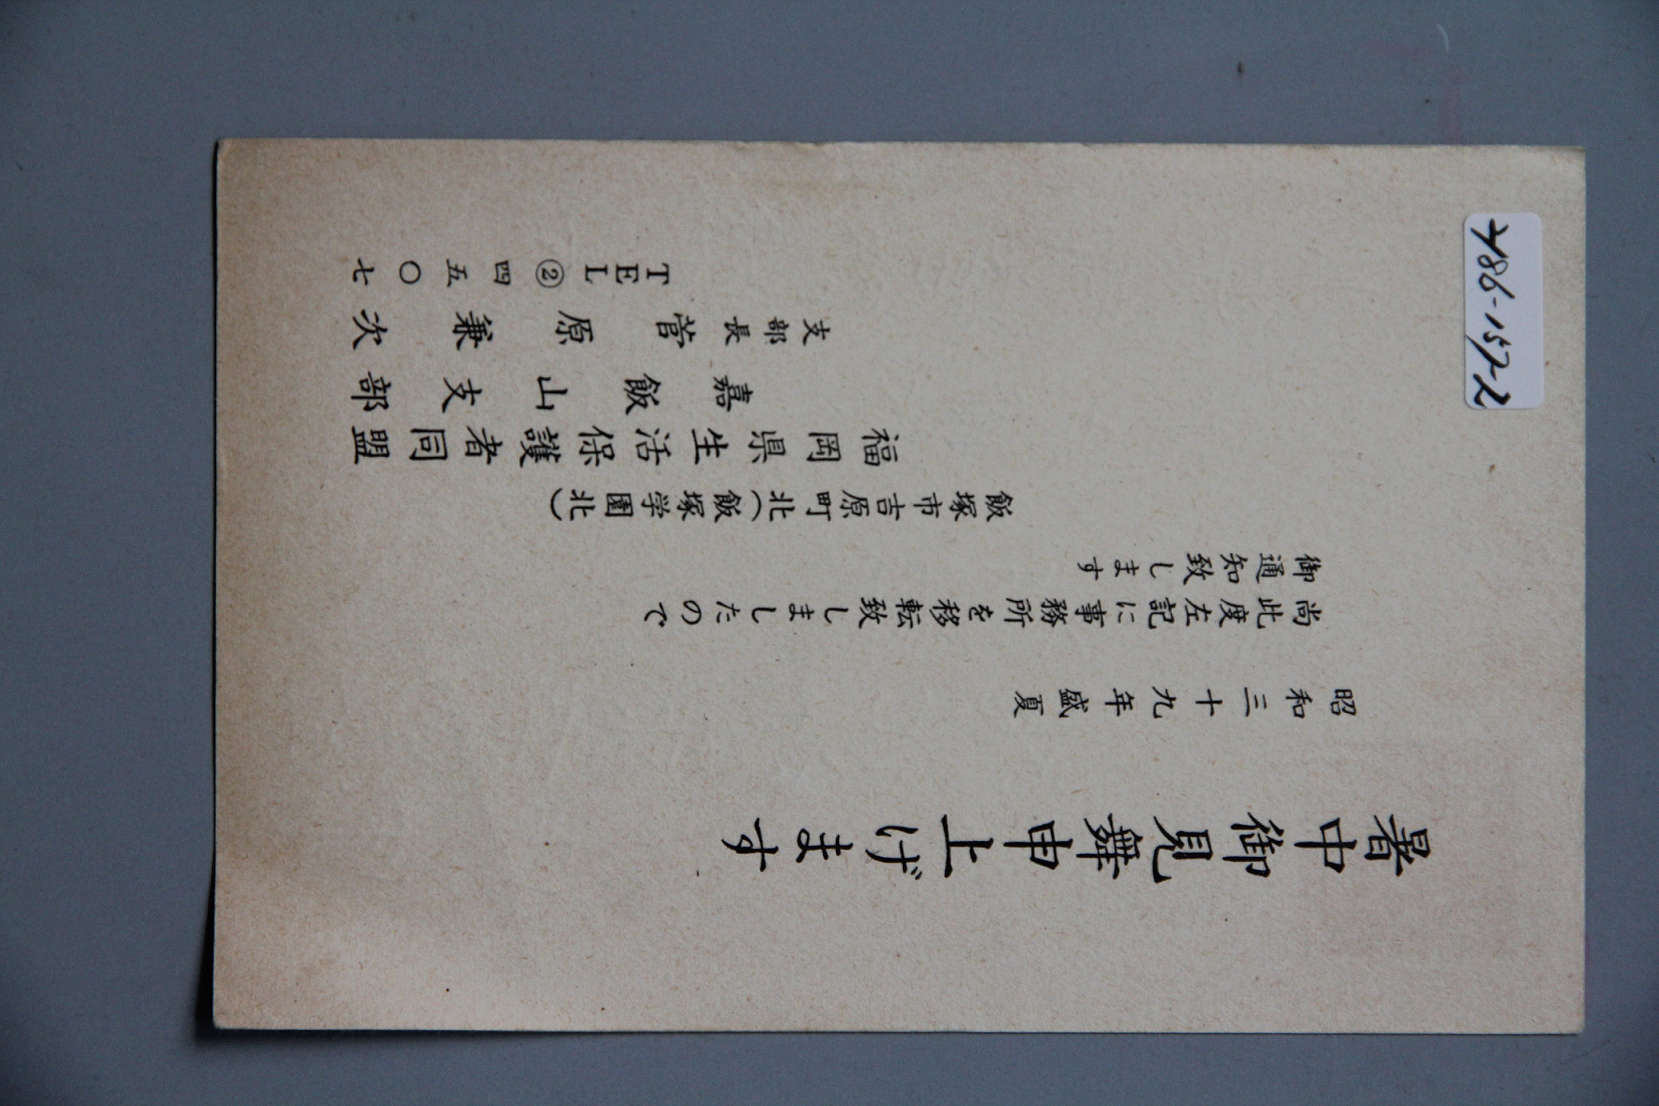 暑中御見舞申上げます
昭和三十九年盛夏
尚此度左記に事務所を移転致しましたので
御通知致します
飯塚市吉原町北(飯塚学園北)
福岡県生活保護者同盟
嘉飯山支部
支部長 菅原兼次
TEL②四五〇七
486-157-2